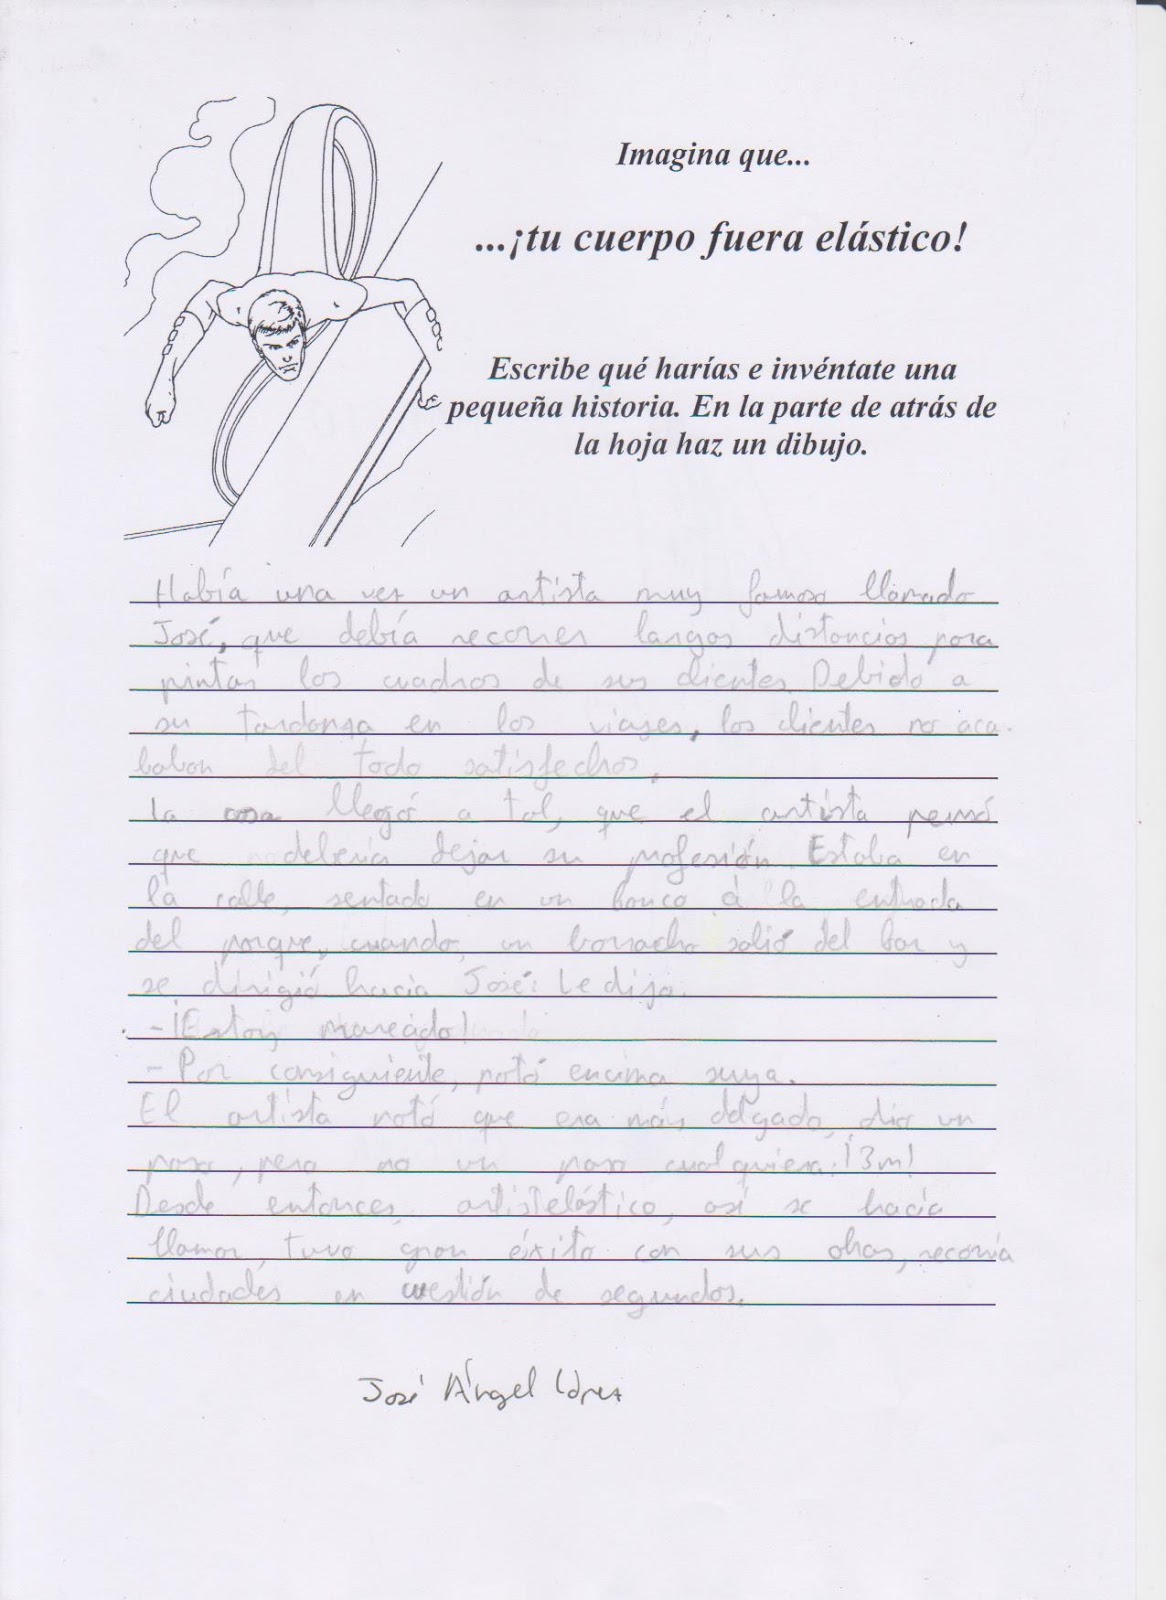 Imagina que...
...¡tu cuerpo fuera elástico!
Escribe qué harías e invéntate una
pequeña historia. En la parte de atrás de
la hoja haz un dibujo.
Había una vez un artista muy famoso llamado
José, que debía recorrer largas distancias para
pintar los cuadros de sus clientes. Debido a
su tardanza en los viajes, los clientes no aca-
baban del todo satisfechos.
la cosa llegó a tal, que el artista pensó
que debería dejar su profesión. Estaba en
la calle, sentado en un banco a la entrada
del parque, cuando, un borracho salió del bar y
se dirigió hacia José: Le dijo.
-¡Estoy mareado!
- Por consiguiente, potó encima suya.
El artista notó que era más delgado, dio un
paso, pero no un paso cualquiera: ¡3m!
Desde entonces, artistelástico, así se hacía
llamar, tuvo gran éxito con sus obras, recorría
ciudades en cuestión de segundos.
José Ángel López